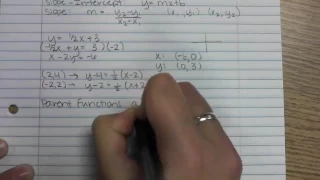 Slope-Intercept y=mx+b
Slope m = y₂-y₁/x₂-x₁ (x₁, y₁) (x₂, y₂)
y = 1/2x + 3
(-1/2x + y = 3)(-2)
x - 2y = -6 x: (-6,0)
y: (0,3)
(2,4) → y-4=1/2(x-2)
(-2,2) → y-2=1/2(x+2)
Parent Functions